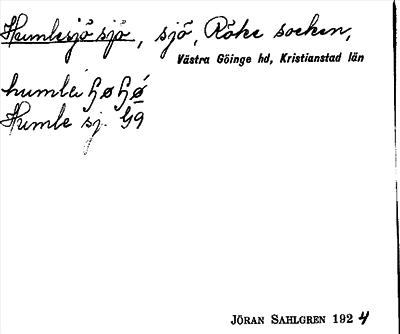 Humlesjö sjö, sjö, Röke socken,
Västra Göinge hd, Kristianstad län
Humle sj. G9
JÖRAN SAHLGREN 1924